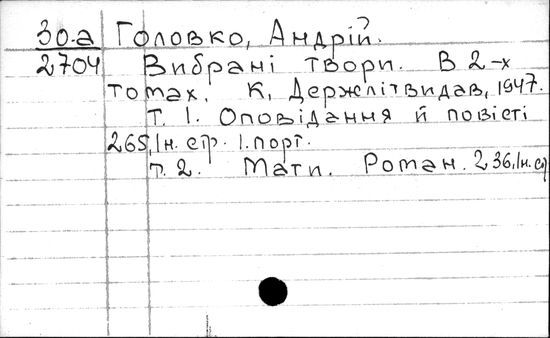 30.а Головко, Андрій.
2704 Вибрані твори. В 2-х
томах. К, Держлітвидав, 1947.
Т. 1. Оповідання й повісті
265,1н. стр. 1. порт.
т. 2. Мати. Роман. 236,1н. ст